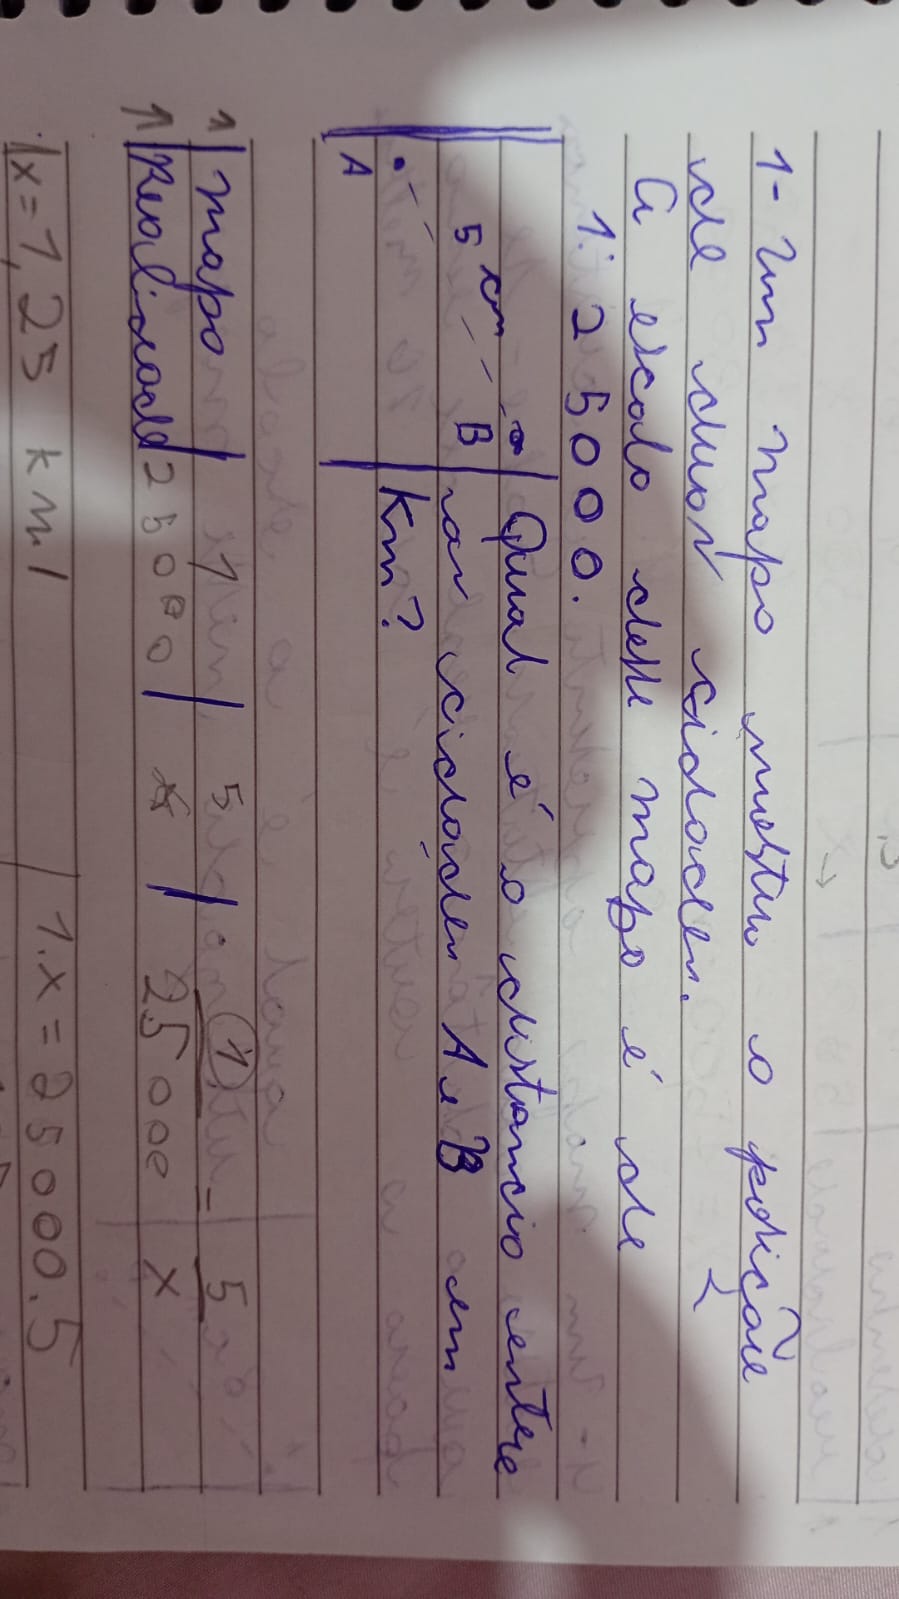 1- Um mapa mostra a posição
de duas cidades.
A escala desse mapa é de
1:25000.
5 cm
A
B
Qual é a distancia entre
as cidades A e B em
Km?
1 mapa 1 5 1 = 5
1 Realidade 25000 x 25000 x
1.x = 25000.5
x = 1,25 km